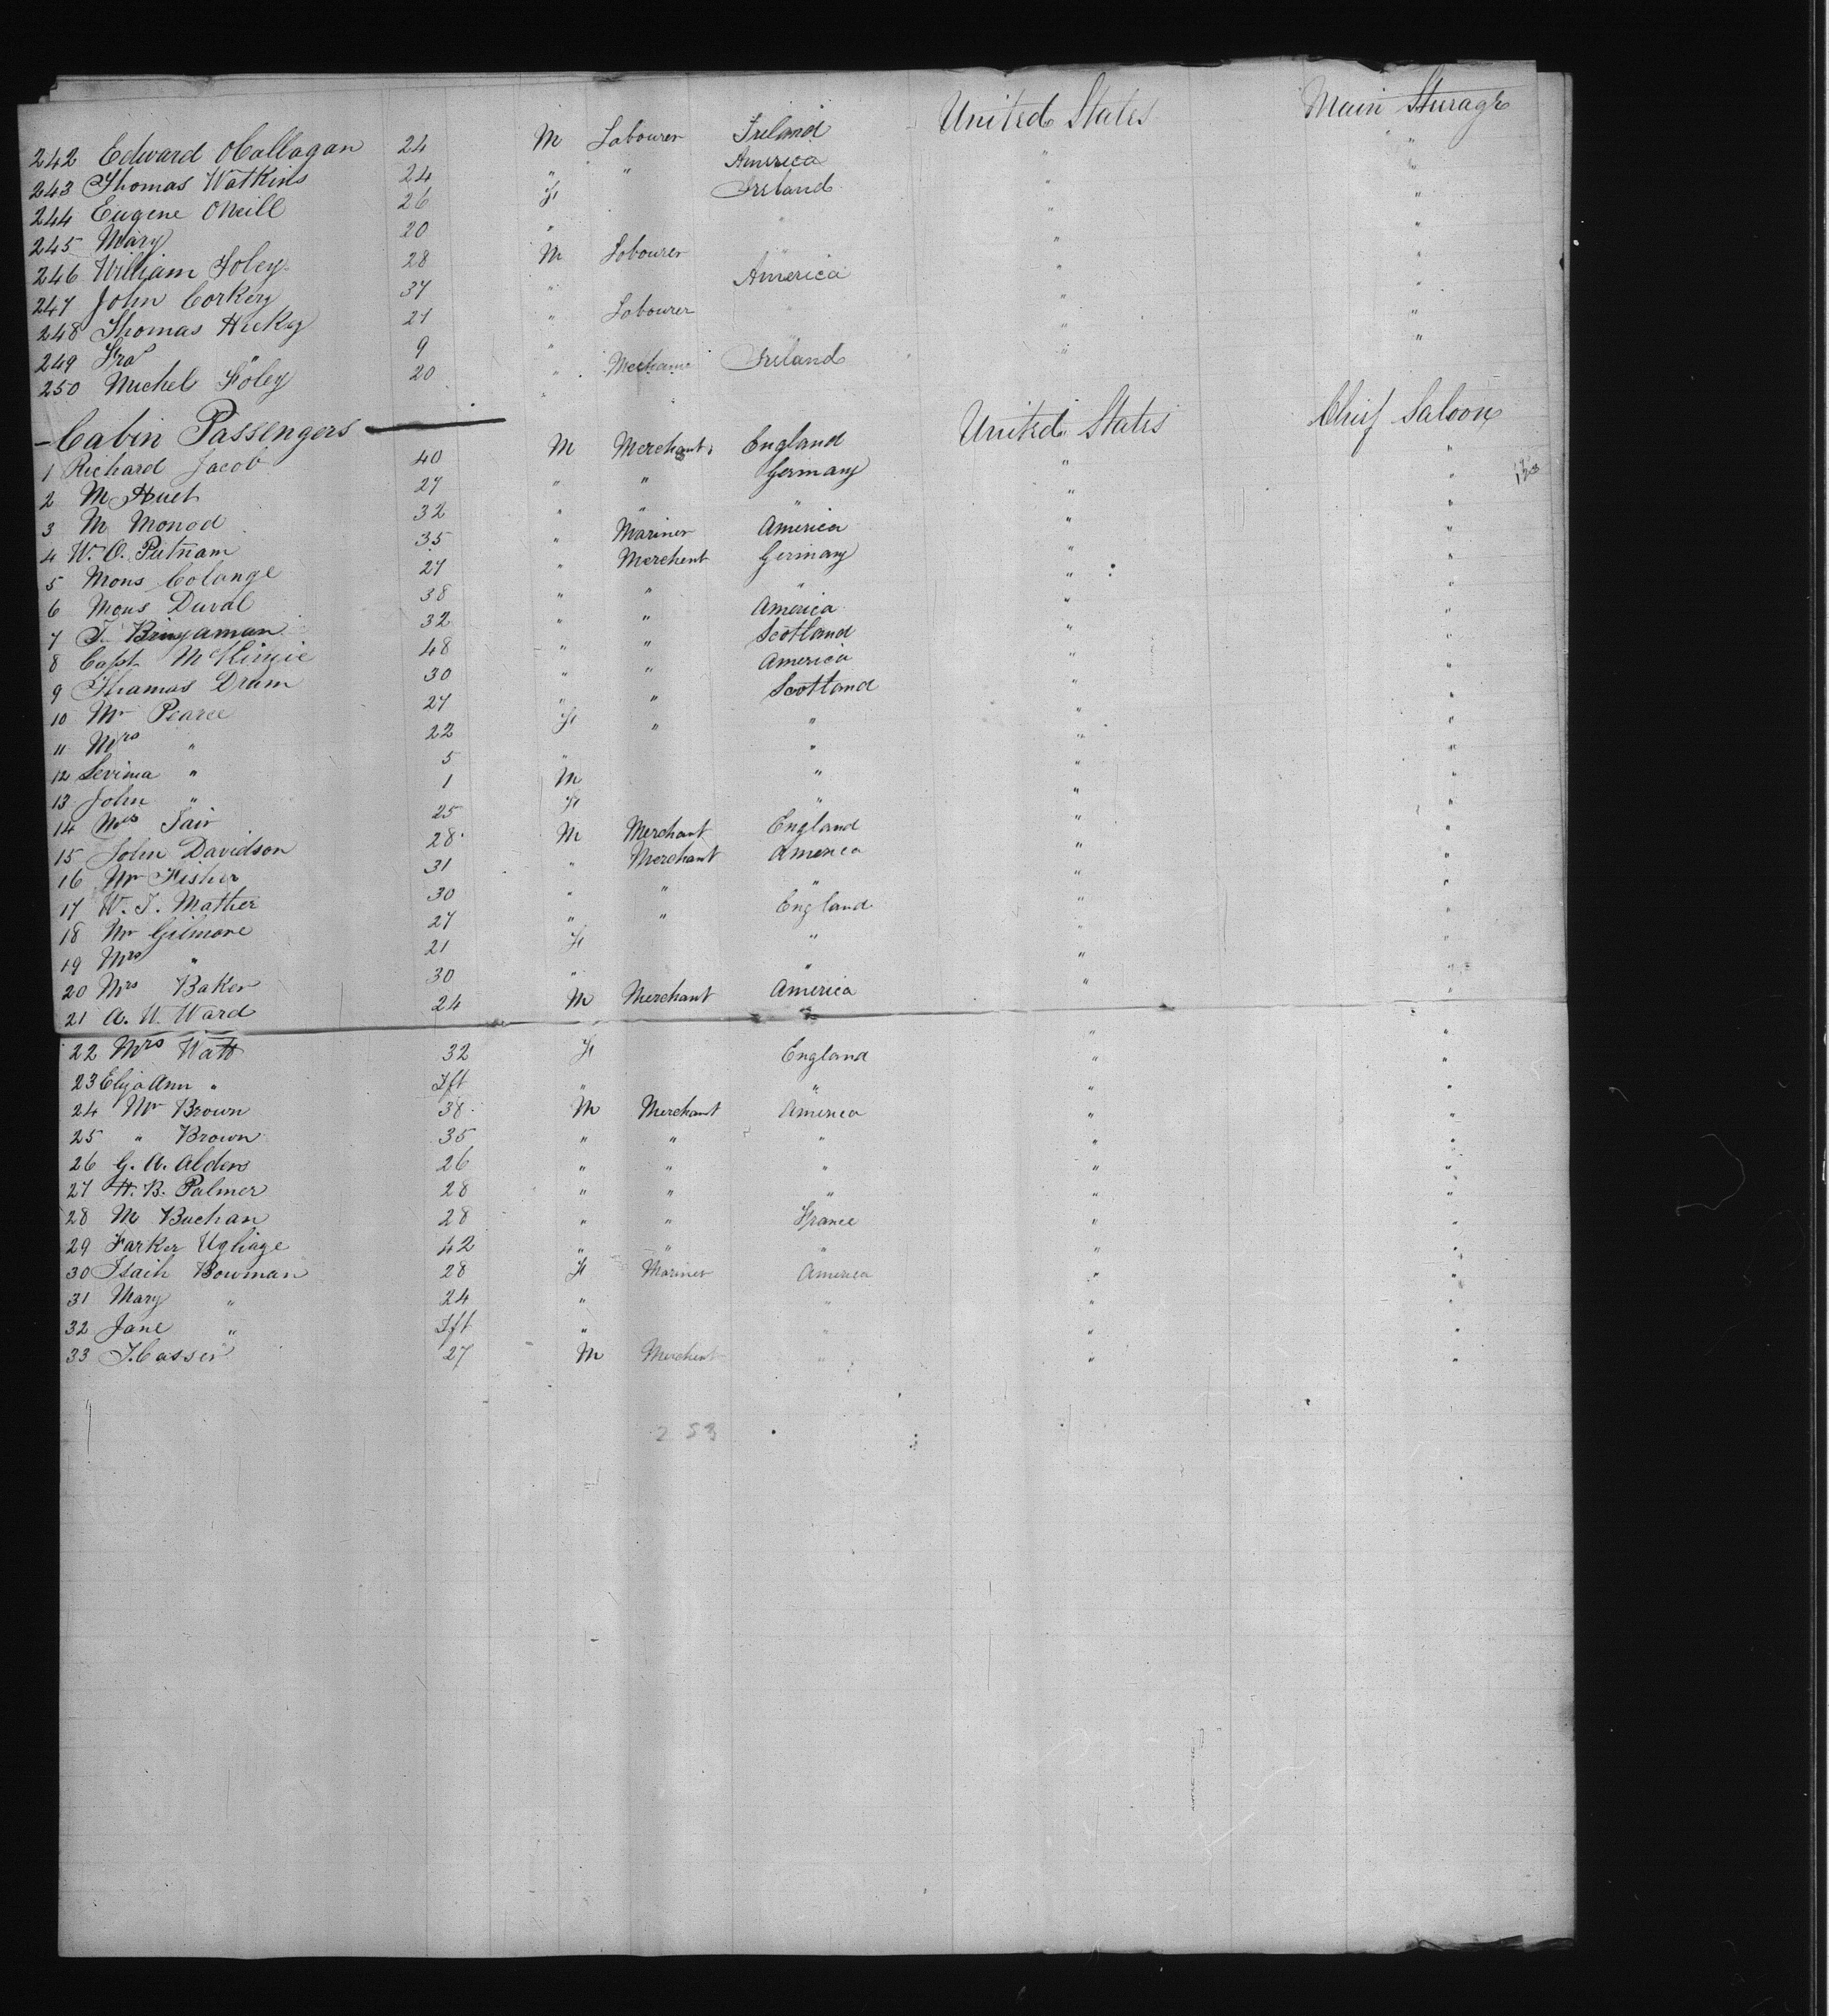 242 Edward OCallagan 24 M Labourer Ireland United States Main Sturage
243 Thomas Watkins 24 " " America " "
244 Eugene ONeill 26 F Ireland " "
245 Mary 20 " " " "
246 William Foley 28 M Labourer " " "
247 John Corkery 37 " America " "
248 Thomas Hicky 21 " Labourer " " "
249 Fra " 9 " " "
250 Michel Foley 20 " Mechanic Ireland " "
Cabin Passengers
1 Richard Jacob 40 M Merchant England United States Chief Saloon
2 M Huet 27 " " Germany " "
3 M Monod 32 " " " " "
4 W. O. Putnam 35 " Mariner America " "
5 Mons Colange 27 " Merchent Germany " "
6 Mons Duval 38 " " " " "
7 T. Bringaman 32 " " America " "
8 Capt McKinzie 48 " " Scotland " "
9 Thamas Dram 30 " " America " "
10 Mr Pearce 27 " " Scotland " "
11 Mrs " 22 F " " " "
12 Levinia " 5 " " " "
13 John " 1 M " " "
14 Mrs Fair 25 F " " "
15 John Davidson 28 M Merchant England " "
16 Mr Fisher 31 " Merchant America " "
17 W. T. Mather 30 " " " " "
18 Mr Gilmore 27 " " England " "
19 Mrs " 21 F " " "
20 Mrs Baker 30 " " " "
21 A. W. Ward 24 M Merchant America " "
22 Mrs Watt 32 F England " "
23 Eliza Ann " Ift " " " "
24 Mr Brown 38 M Merchant America " "
25 " Brown 35 " " " " "
26 G. A. Alders 26 " " " " "
27 H. B. Palmer 28 " " " " "
28 M Buchan 28 " " France " "
29 Farker 42 " " " " "
30 Isaih Bowman 28 F Mariner America " "
31 Mary " 24 " " " "
32 Jane " Ift " " " "
33 J. Casser 27 M Merchent " " "
253